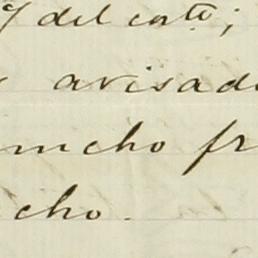 y del corte;
avisad
mucho fr
cho.